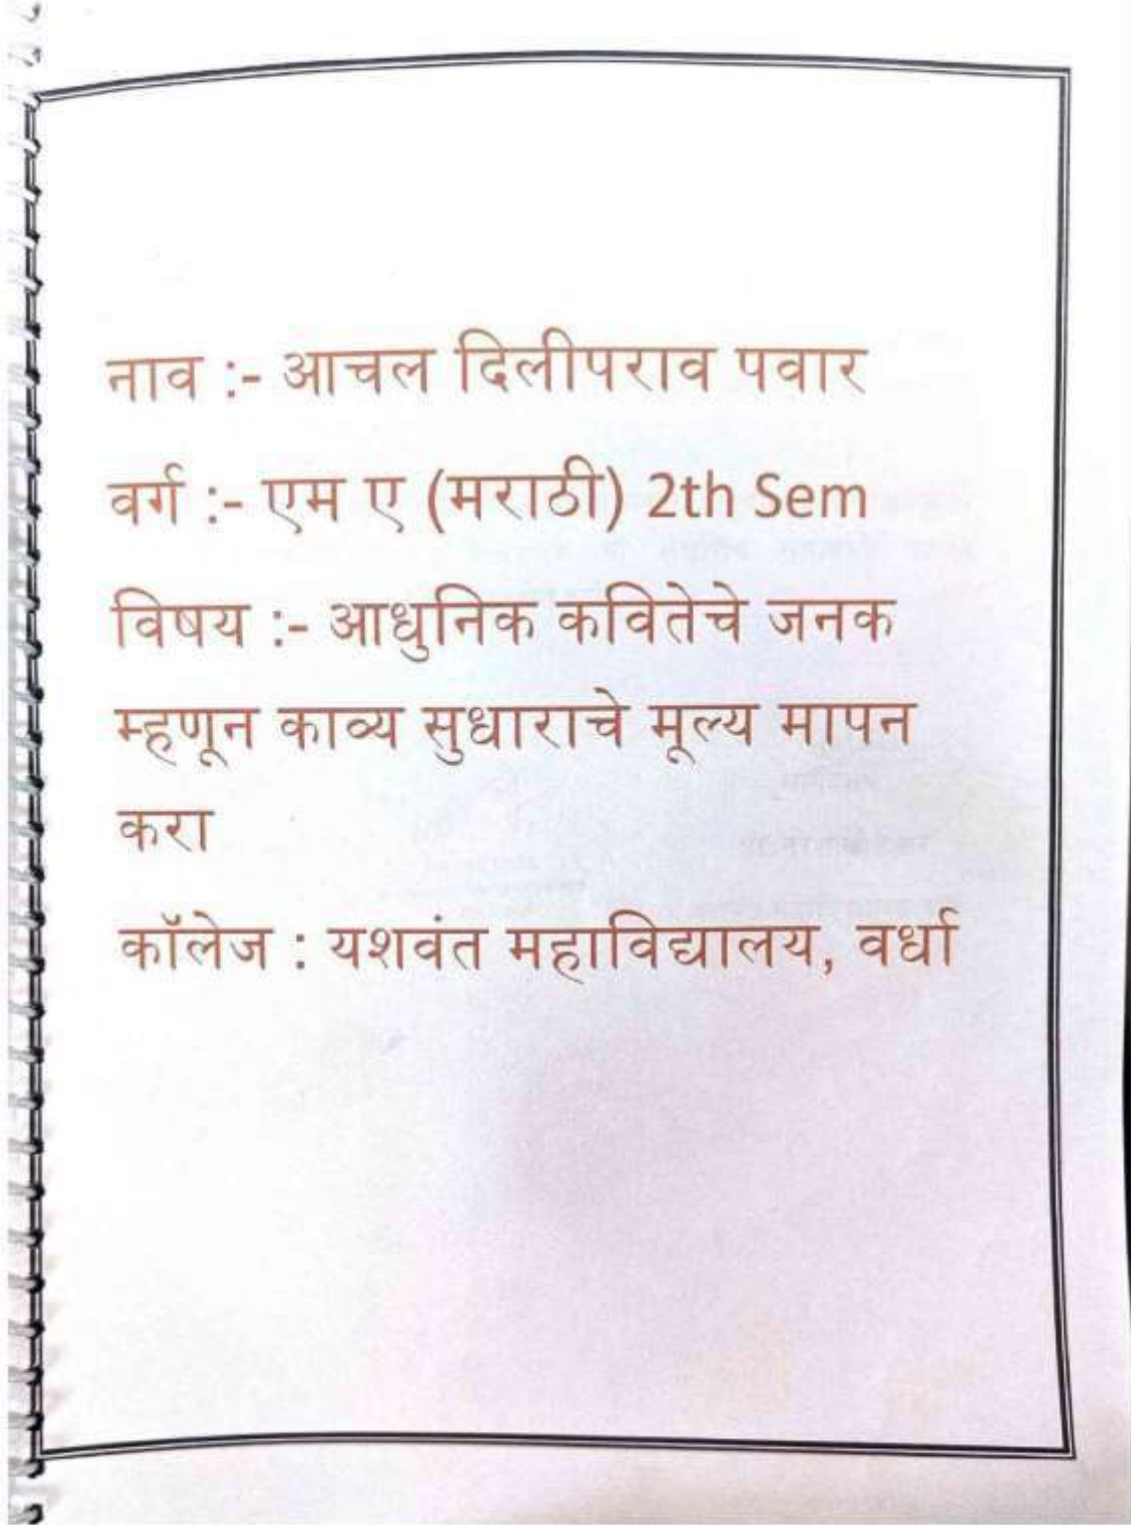 नाव :- आचल दिलीपराव पवार
वर्ग :- एम ए (मराठी) 2th Sem
विषय :- आधुनिक कवितेचे जनक
म्हणून काव्य सुधाराचे मूल्य मापन
करा
कॉलेज : यशवंत महाविद्यालय, वर्धा